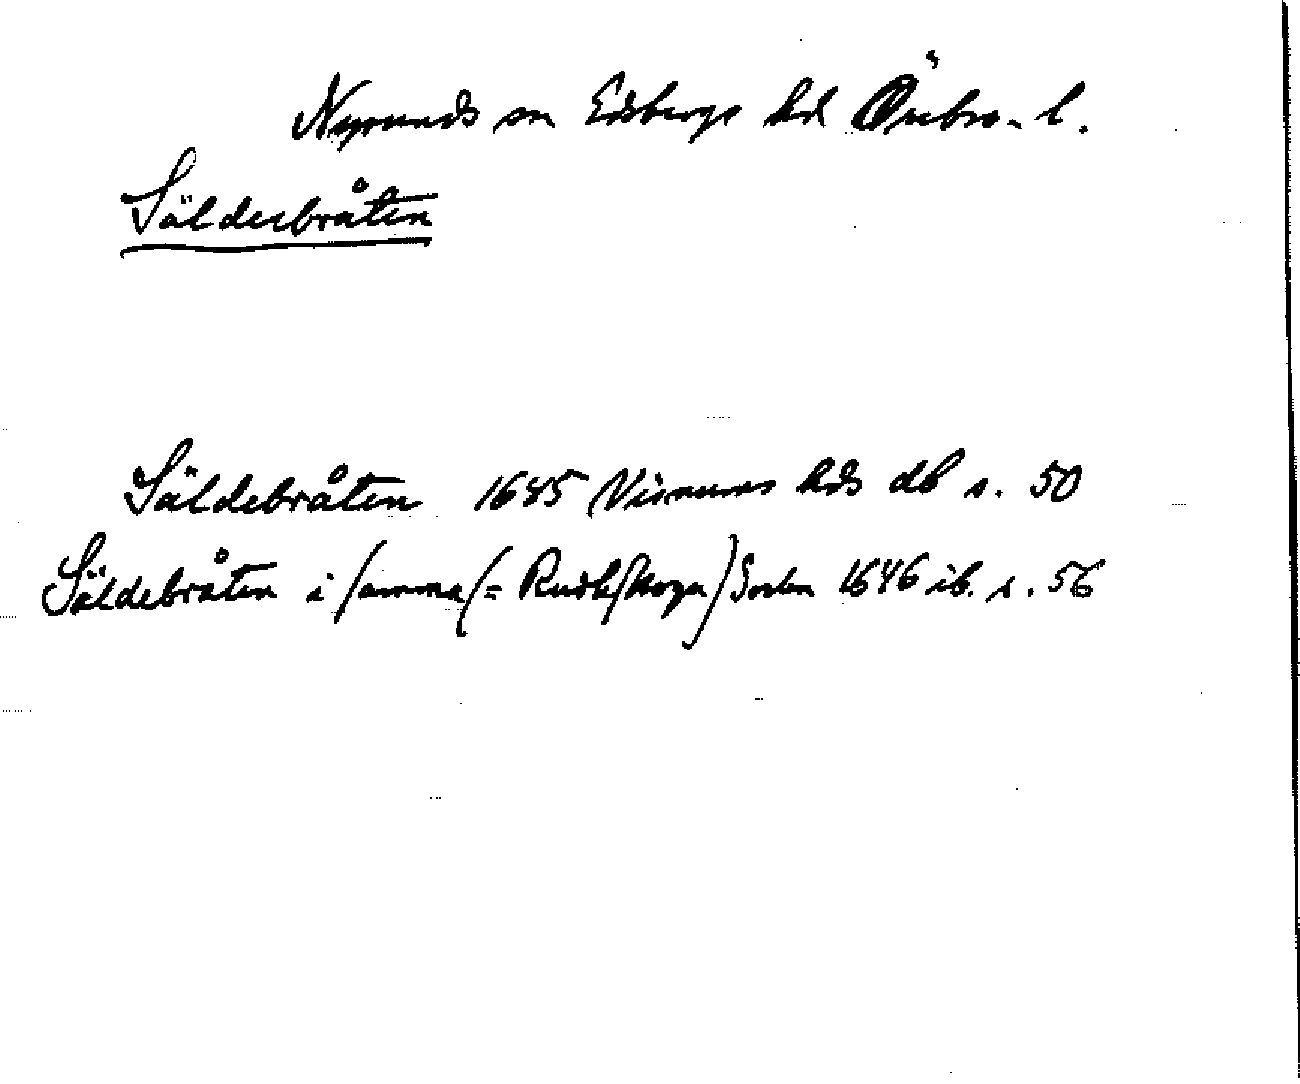 Nysunds sn Edsbergs hd Örebro. l.
Sälderbråten
Säldebråten 1645 Visnums hds db s. 50
Säldebråten i samma (= Rudskoga) Socken 1646 ib. s. 56